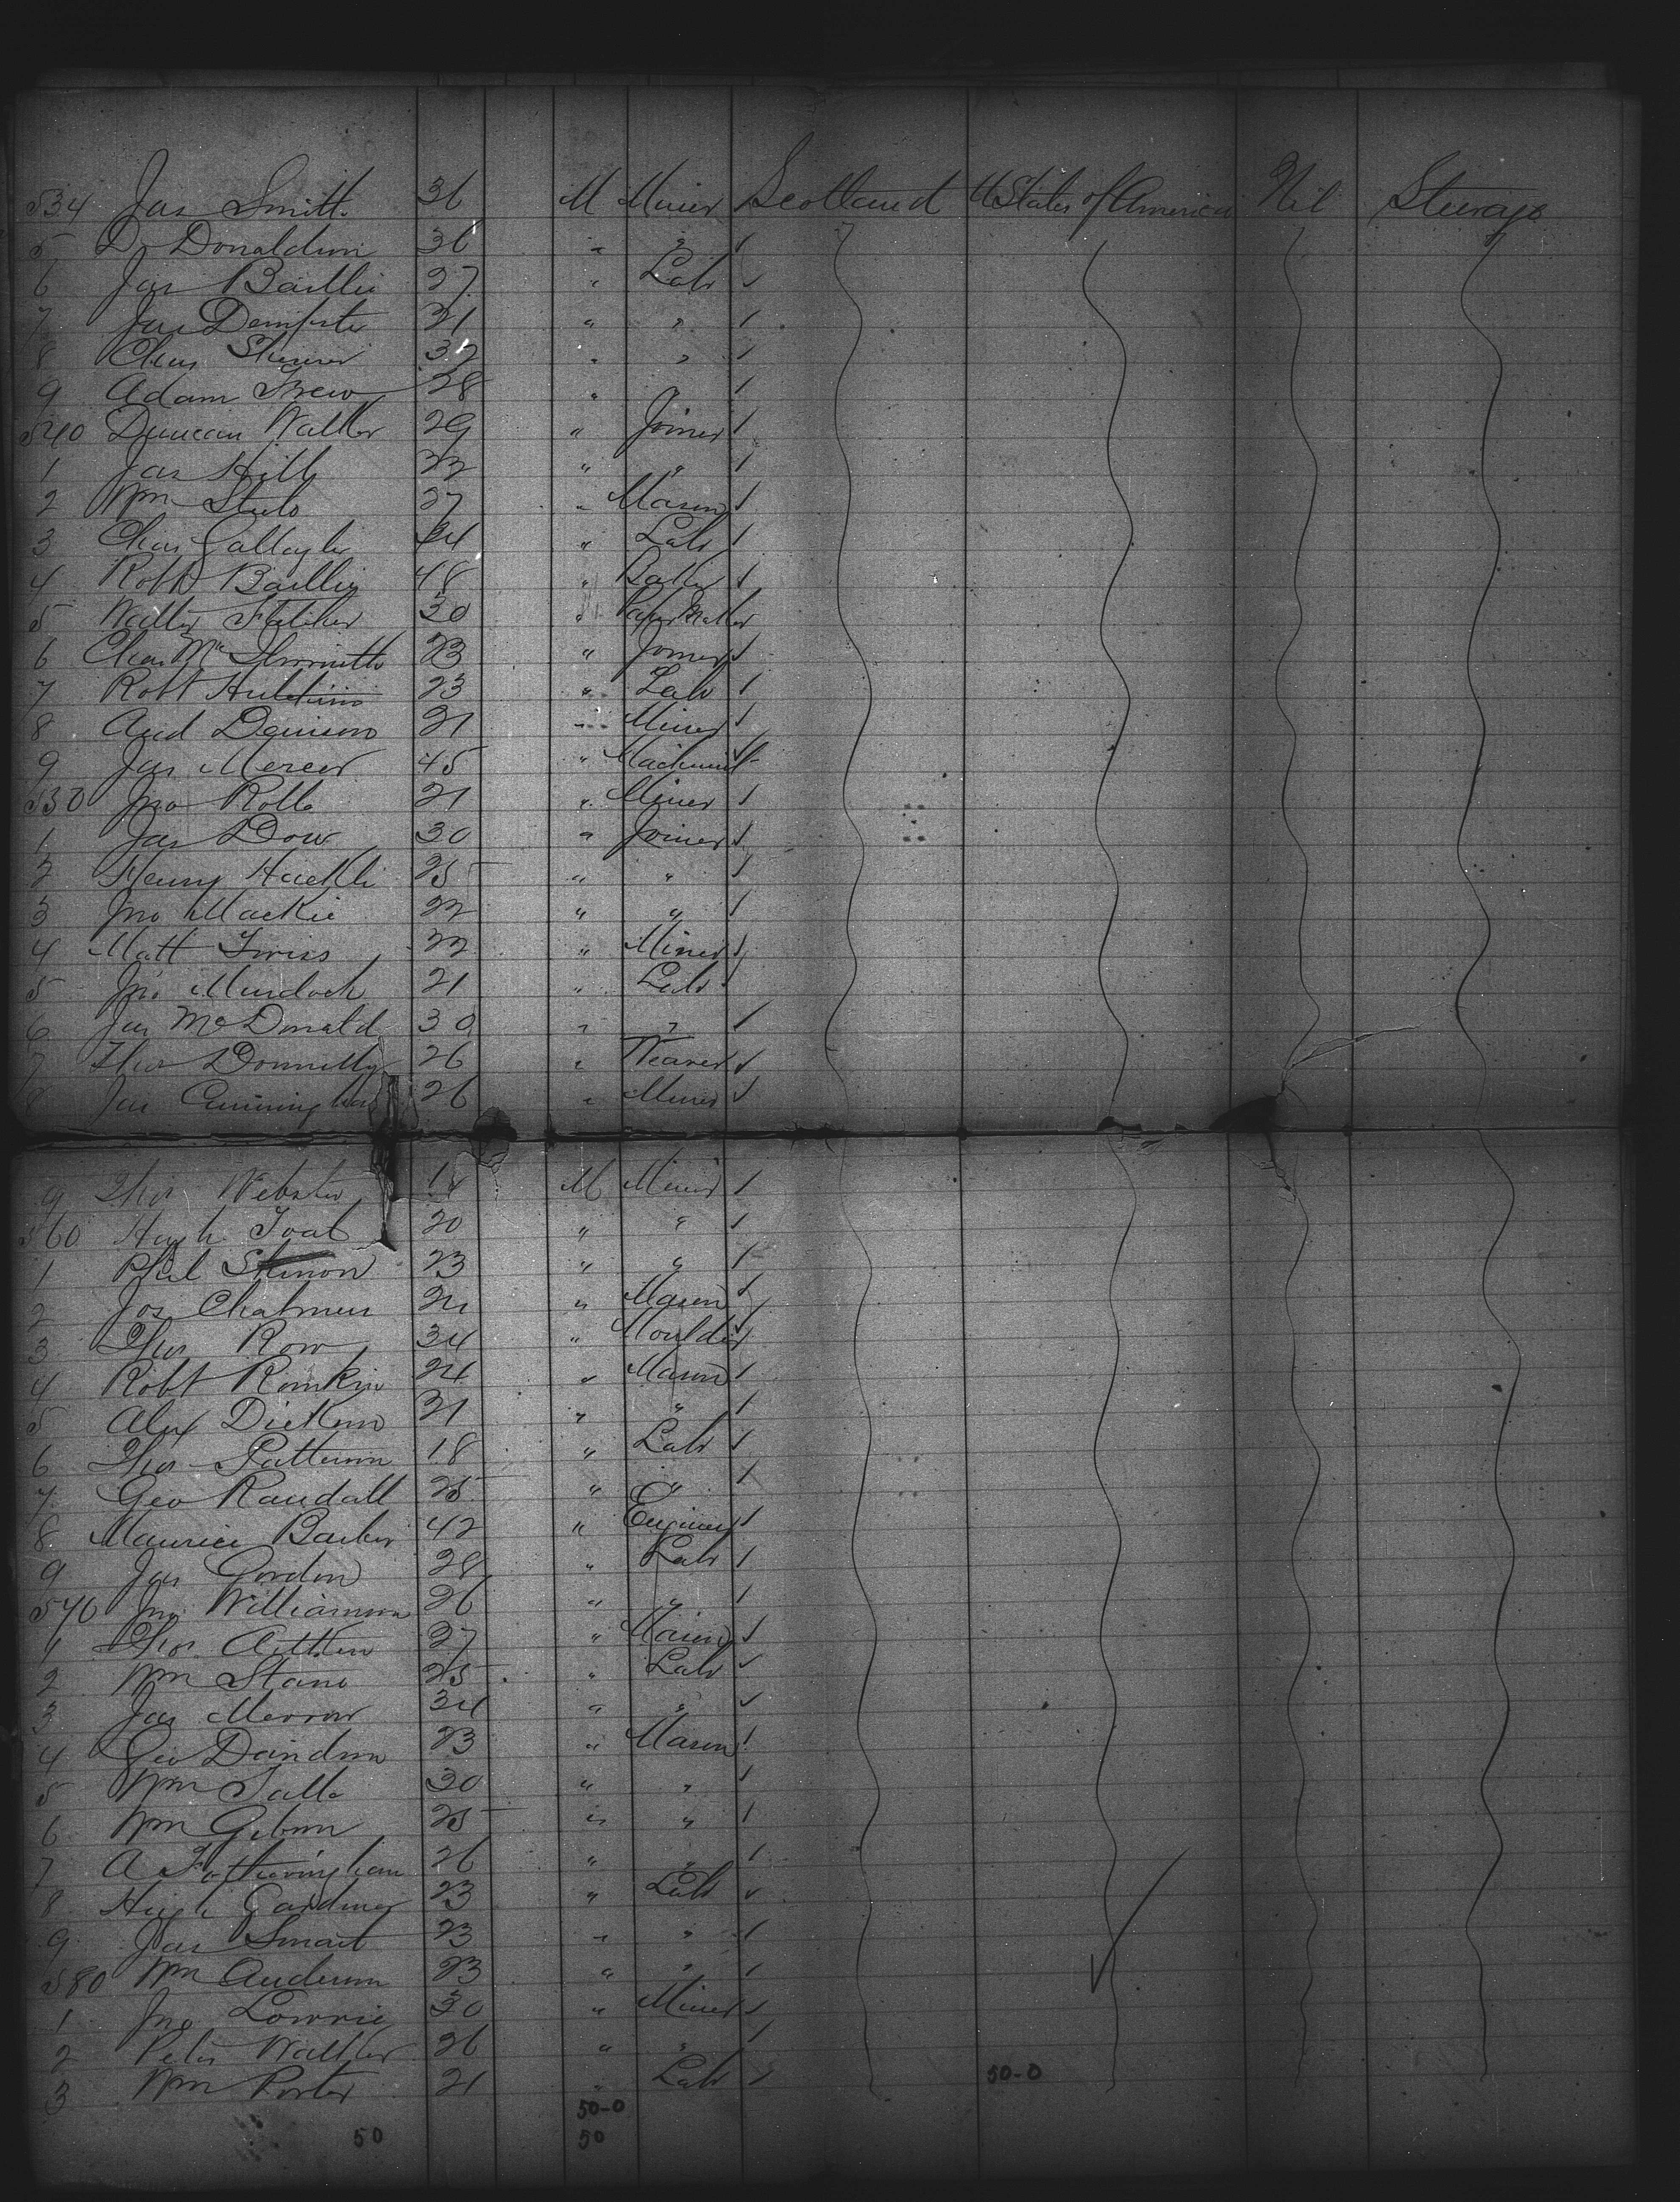 534 Jas Smith 36 M Miner Scotland U States of America Nil Steerage
5 D Donaldson 36 " "
6 Jas Baillie 27 " Labr
7 Jas Dempster 21 " "
8 Chas 32 " "
9 Adam Frew 28 "
540 Duncan Walker 29 " Joiner
1 Jas Hill " "
2 Wm 27 " Mason
3 Chas Gallagher 44 " Labr
4 Robt Baillie 48 " Baker
5 Walter Fletcher 30 " Paper Maker
6 Chas Mc 23 " Joiner
7 Robt 23 " Labr
8 And Davison 21 " Miner
9 Jas Mercer 45 " Machinist
550 Jno Rollo 21 " Miner
1 Jas Dow 30 " Joiner
2 Henry 25 " "
3 Jno Mackie 22 " "
4 Matt Twiss " Miner
5 Jno Murdoch 21 " Labr
6 Jas McDonald 30 " "
7 Thos Donnelly 26 " Weaver
8 Jas Cunningham 26 " Miner
9 Thos Webster M Miner
560 Hugh Toal 20 " "
1 Phil 23 " "
2 Jos Chalmers " Mason
3 Thos Row 34 " Moulder
4 Robt Rankin 24 " Mason
5 Alex Dickson 21 " "
6 Thos Patterson 18 " Labr
7 Geo Randall 25 " "
8 Maurice Barber 42 " Engineer
9 Jas Gordon 28 " Labr
570 Jno Williamson 26 " "
1 Thos Aitken 27 " Mason
2 Wm 25 " Labr
3 Jas Morrow 34 " "
4 Geo Davidson 23 " Mason
5 Wm 30 " "
6 Wm Gibson 25 " "
7 A Fotheringham 26 " "
8 Hugh Gardner 23 " Labr
9 Jas Smart 23 " "
580 Wm Anderson 23 " "
1 Jno Lowrie 30 " Miner
2 Peter Walker 26 " "
3 Wm Porter 21 " Labr 50-0
50-0
50 50